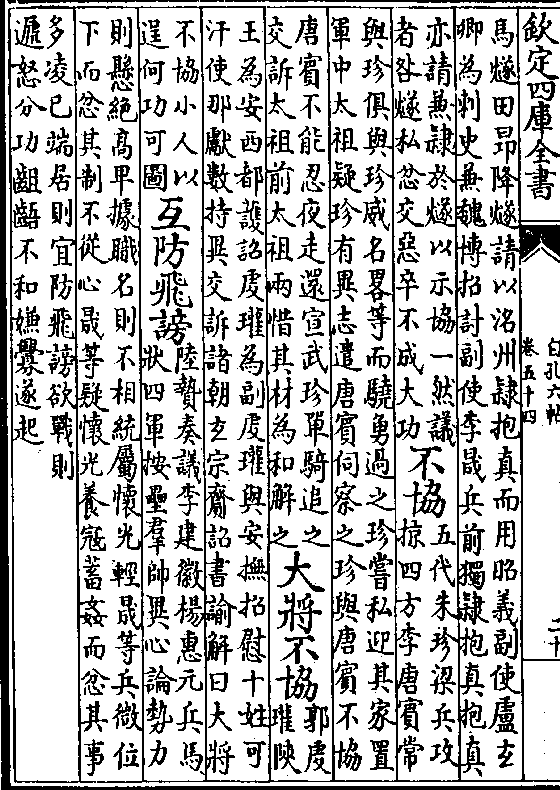 欽定四庫全書
白孔六帖
卷五十四
二十
馬燧田昂降燧請以洺州隷抱真而用昭義副使盧玄
卿為刺史兼魏博招討副使李晟兵前獨隷抱真抱真
亦請兼隷於燧以示協一然議
者咎燧私忿交惡卒不成大功
不協
五代朱珍梁兵攻
掠四方李唐賓常
與珍俱與珍威名畧等而驍勇過之珍嘗私迎其家置
軍中太祖疑珍有異志遣唐賓伺察之珍與唐賓不協
唐賓不能忍夜走還宣武珍單騎追之
交訴太祖前太祖兩惜其材為和解之
大將不協
郭䖍
瓘陜
王為安西都護詔䖍瓘為副䖍瓘與安撫招慰十姓可
汗使那獻數持異交訴諸朝玄宗齎詔書諭解曰大將
不協小人以
逞何功可圖
互防飛謗
陸贄奏議李建徽楊惠元兵馬
狀四軍按壘羣帥異心論勢力
則懸絶高卑據職名則不相統屬懷光輕晟等兵微位
下而忿其制不從心晟等疑懷光養寇蓄姦而忿其事
多凌已端居則宜防飛謗欲戰則
遞恐分功齟齬不和嫌釁遂起